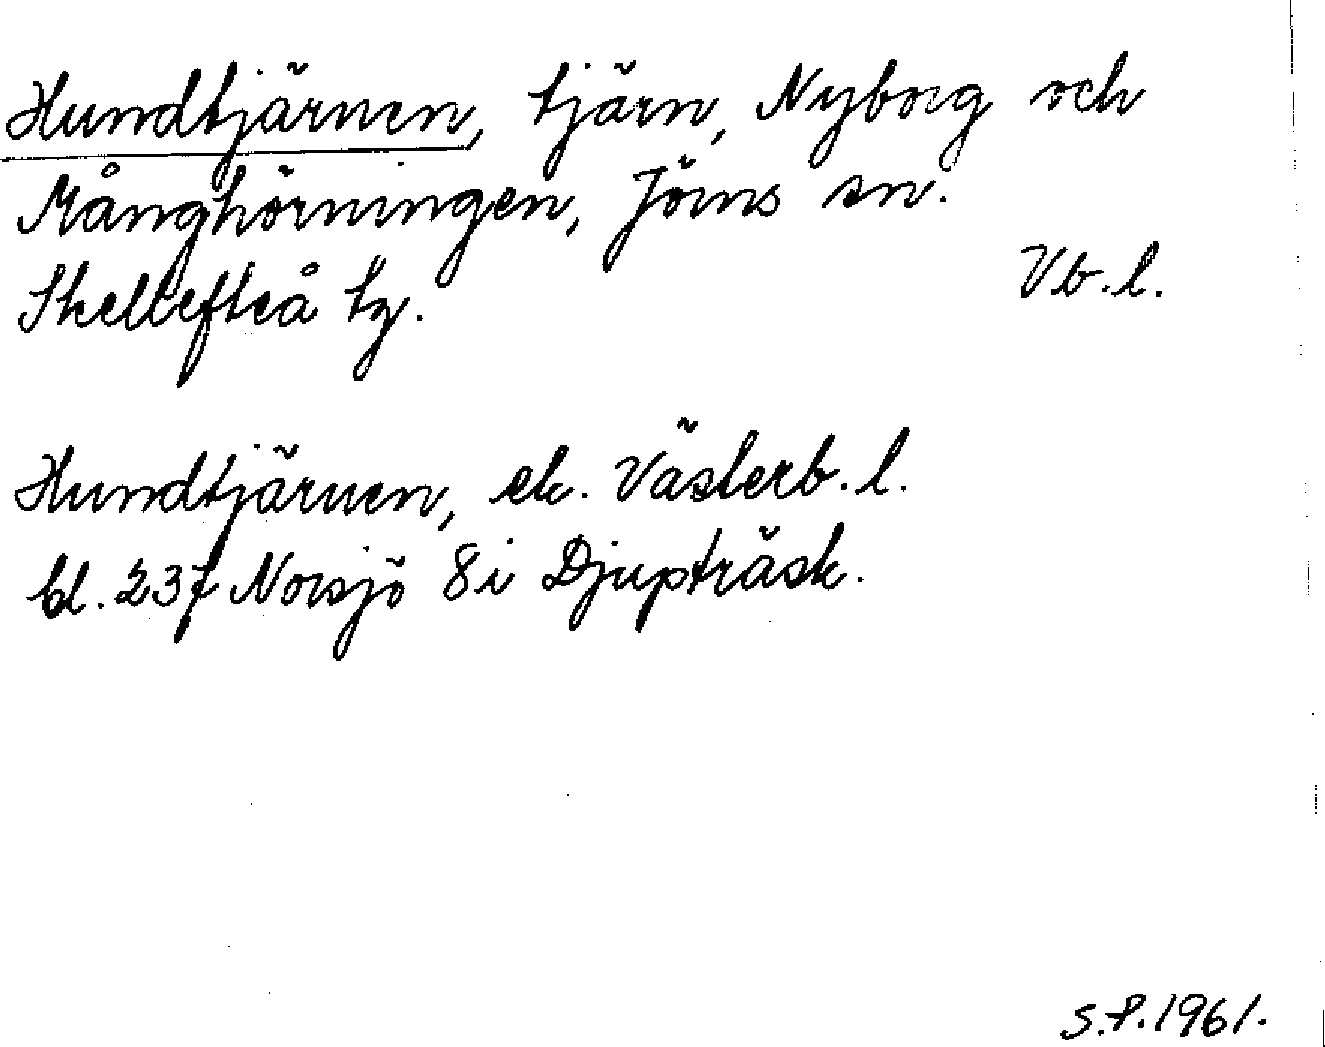 Hundtjärnen, tjärn, Nyborg och
Månghörningen, Jörns sn.
Skellefteå tg. Vb.l.
Hundtjärnen, ek. Västerb.l.
bl. 237 Norsjö 8i Djupträsk.
S.P.1961.